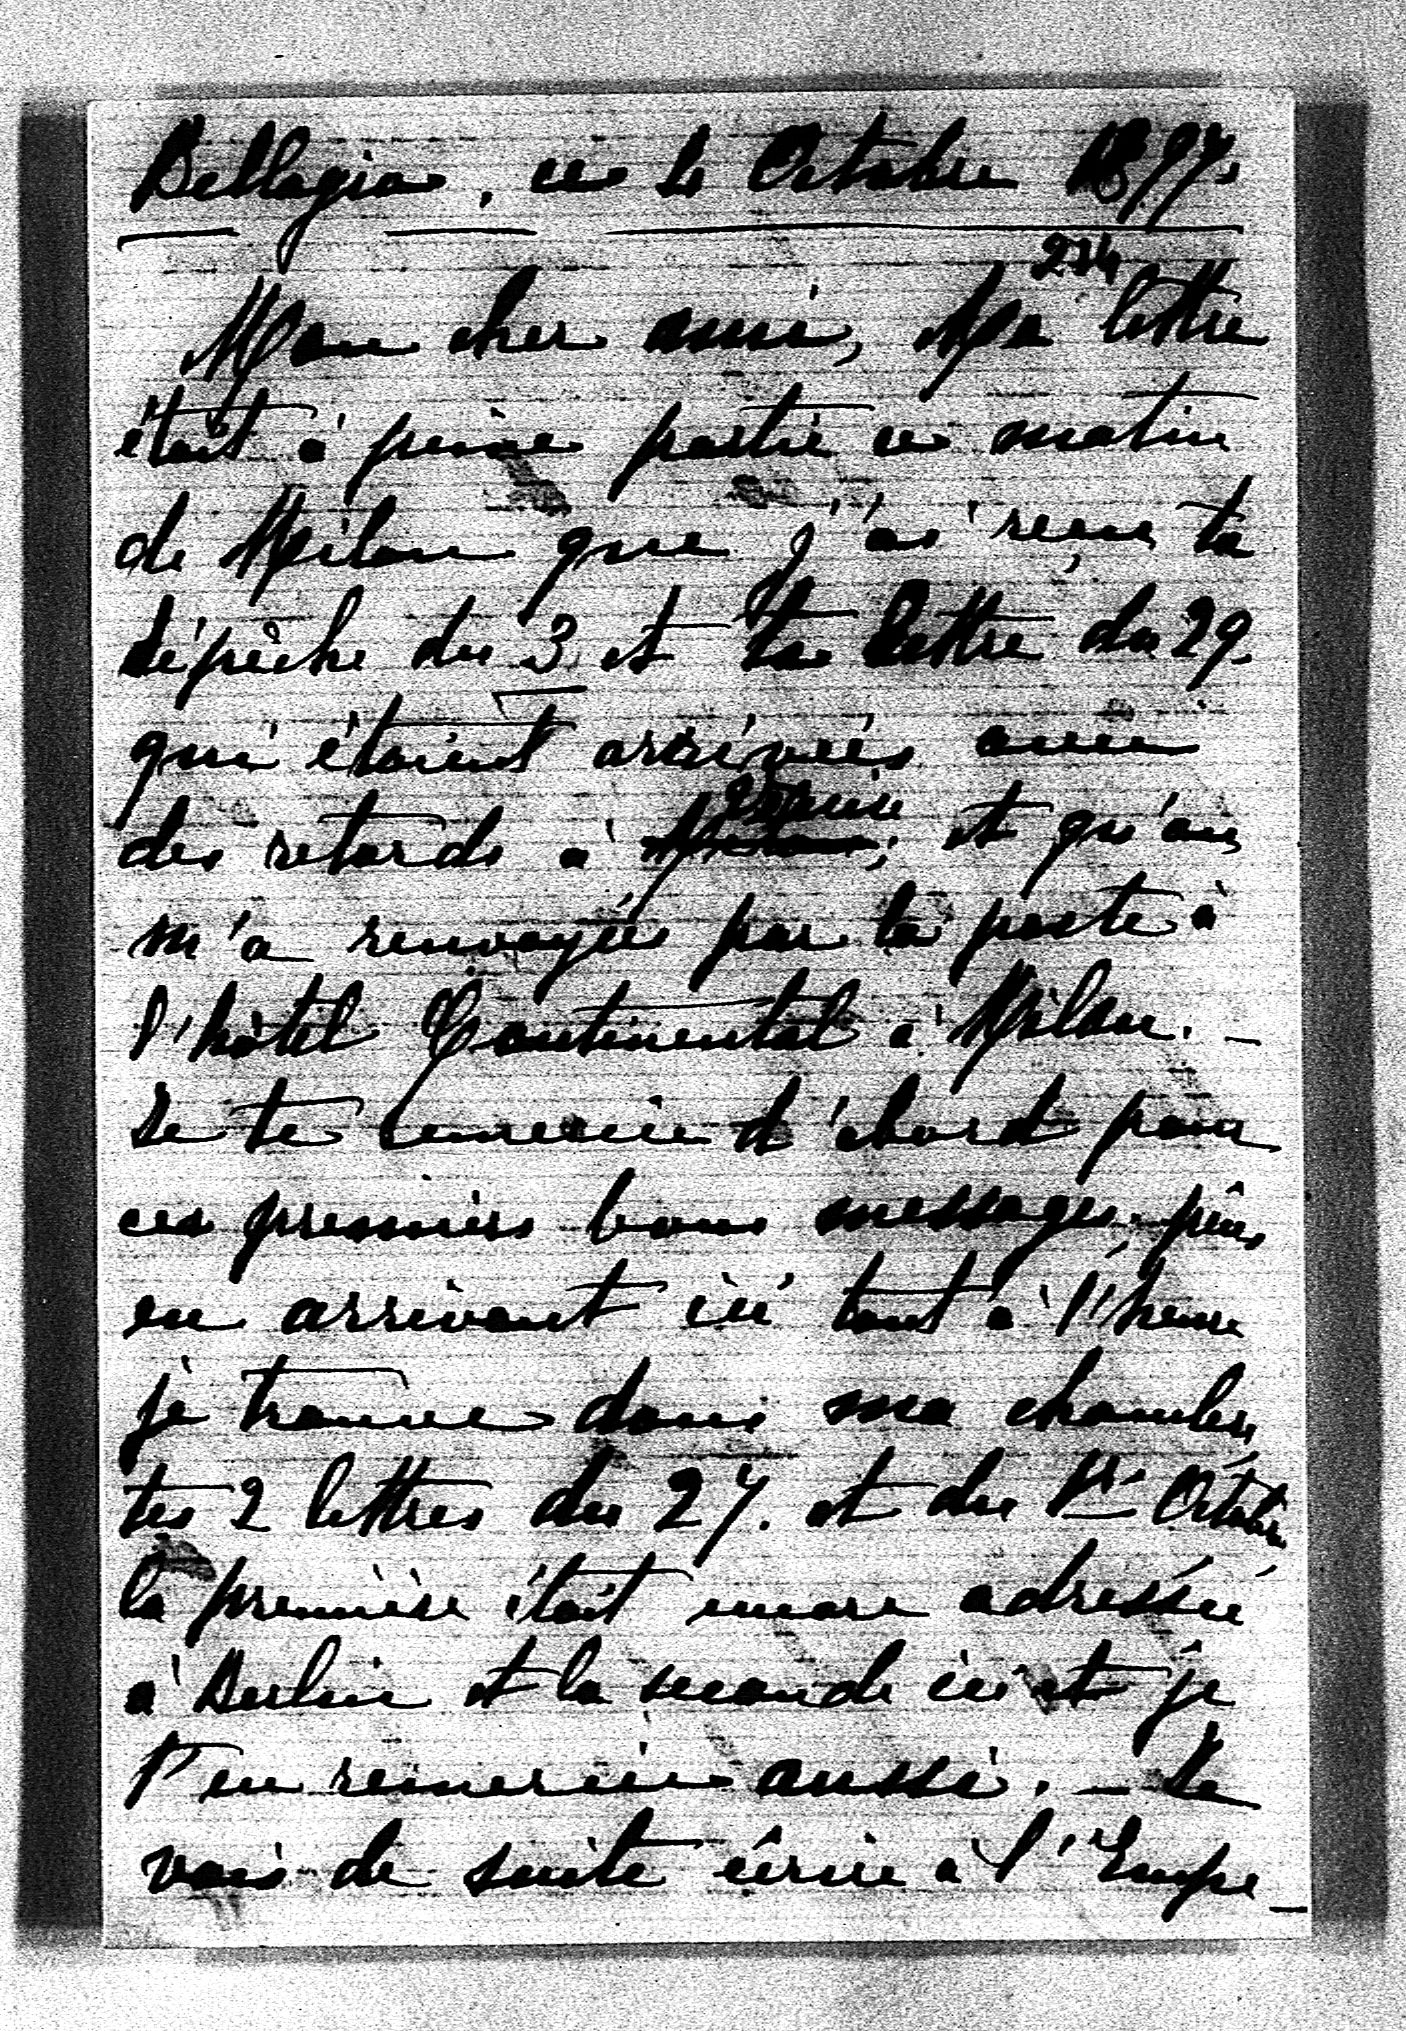 Bellagio, ce 4 Octobre 1897.
274
Mon cher ami, Ma lettre
était à peine partie ce matin
de Milan que j'ai reçu ta
dépêche du 3 et ta lettre du 29.
qui étaient arrivées avec
des retards à Venise, et qu'on
m'a renvoyées par la poste à
l'hôtel Continental à Milan. -
Je te remercie d'abord pour
ces premiers bons messages. puis
en arrivant ici tout à l'heure
je trouve dans ma chambre
tes 2 lettres du 27. et du 1er Octobre
la première était encore adressée
à Berlin et la seconde ici et je
t'en remercie aussi. - Je
vais de suite écrire à l'Empe-